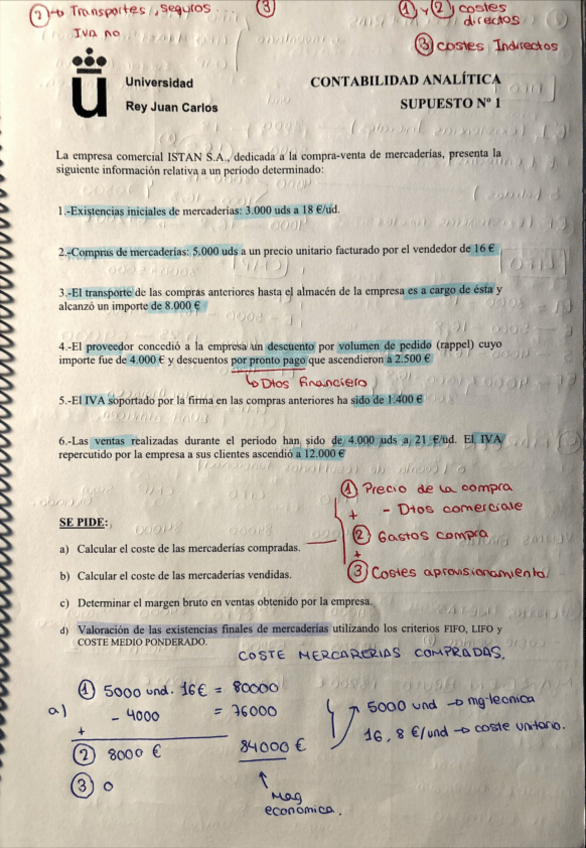 ② → Transportes, seguros
IVA no
③
① y ② costes
directos
③ costes Indirectos
ü
Universidad
Rey Juan Carlos
CONTABILIDAD ANALÍTICA
SUPUESTO Nº 1
La empresa comercial ISTAN S.A., dedicada a la compra-venta de mercaderías, presenta la
siguiente información relativa a un periodo determinado:
1.-Existencias iniciales de mercaderías: 3.000 uds a 18 €/ud.
2.-Compras de mercaderías: 5.000 uds a un precio unitario facturado por el vendedor de 16 €
3.-El transporte de las compras anteriores hasta el almacén de la empresa es a cargo de ésta y
alcanzó un importe de 8.000 €
4.-El proveedor concedió a la empresa un descuento por volumen de pedido (rappel) cuyo
importe fue de 4.000 € y descuentos por pronto pago que ascendieron a 2.500 €
↳ Dtos financiero
5.-El IVA soportado por la firma en las compras anteriores ha sido de 1.400 €
6.-Las ventas realizadas durante el periodo han sido de 4.000 uds a 21 €/ud. El IVA
repercutido por la empresa a sus clientes ascendió a 12.000 €
① Precio de la compra
+ - Dtos comerciale
② Gastos compra
+
③ Costes aprovisionamiento
SE PIDE:
a) Calcular el coste de las mercaderías compradas.
b) Calcular el coste de las mercaderías vendidas.
c) Determinar el margen bruto en ventas obtenido por la empresa.
d) Valoración de las existencias finales de mercaderías utilizando los criterios FIFO, LIFO y
COSTE MEDIO PONDERADO.
COSTE MERCARERIAS COMPRADAS.
a)
① 5000 und. 16€ = 80000
- 4000 = 76000
+
② 8000 € 84000 €
③ 0
↑
Mag
económica.
5000 und → mg tecnica
16,8 €/und → coste unitario.